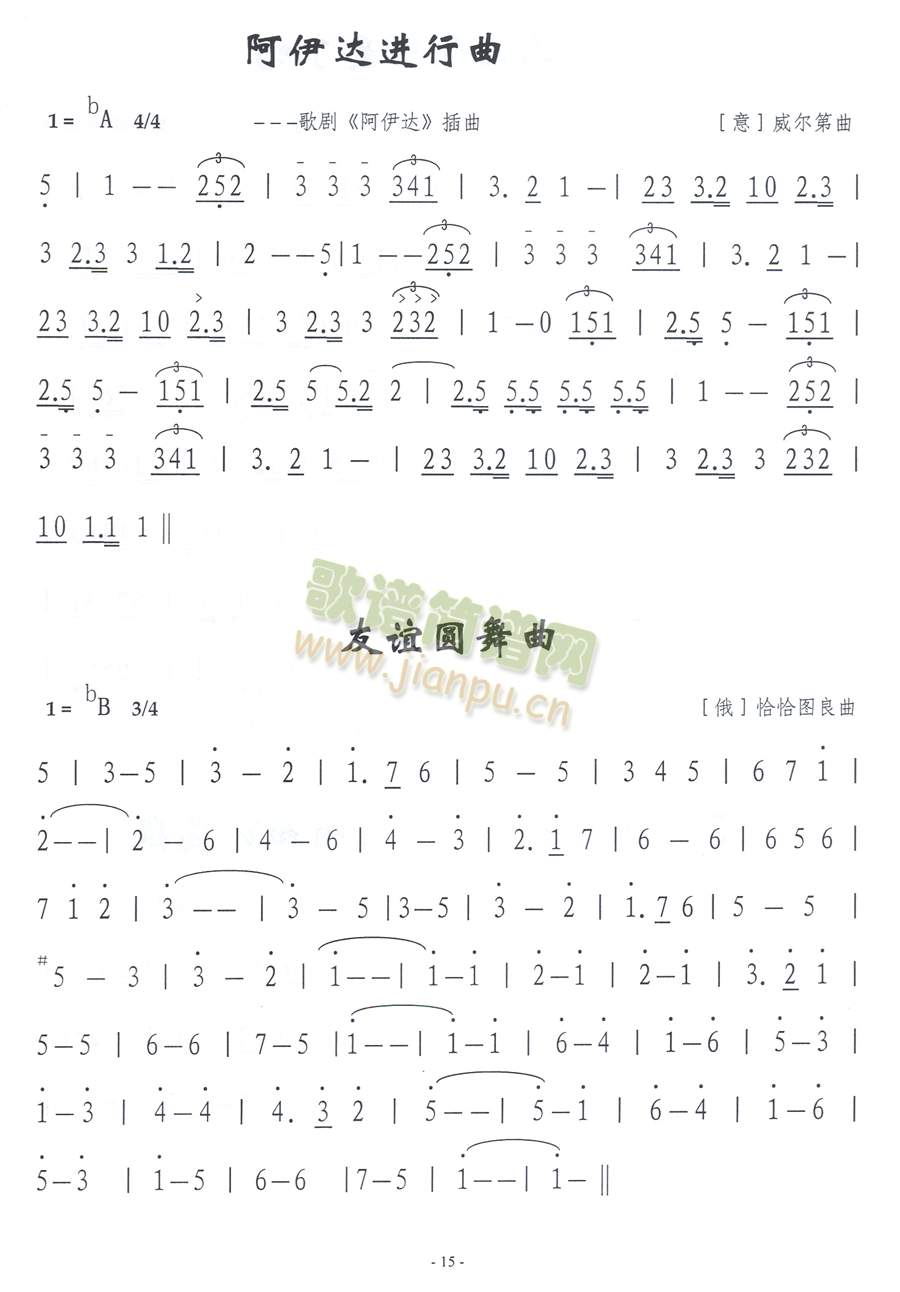 阿伊达进行曲
1= bA 4/4 ---歌剧《阿伊达》插曲 [意]威尔第曲
5 | 1 -- 252 | 3 3 3 341 | 3. 2 1 -| 23 3.2 10 2.3 |
3 2.3 3 1.2 | 2 --5|1 --252 | 3 3 3 341 | 3. 2 1 -|
23 3.2 10 2.3 | 3 2.3 3 232 | 1 -0 151 | 2.5 5 - 151 |
2.5 5 - 151 | 2.5 5 5.2 2 | 2.5 5.5 5.5 5.5 | 1 -- 252 |
3 3 3 341 | 3. 2 1 - | 23 3.2 10 2.3 | 3 2.3 3 232 |
10 1.1 1 ‖
歌谱简谱网
www.jianpu.cn
友谊圆舞曲
1= bB 3/4 [俄]恰恰图良曲
5 | 3-5 | 3 - 2 | 1. 7 6 | 5 - 5 | 3 4 5 | 6 7 1 |
2--| 2 - 6 | 4 - 6 | 4 - 3 | 2. 1 7 | 6 - 6 | 6 5 6 |
7 1 2 | 3 -- | 3 - 5 |3-5 | 3 - 2 | 1. 7 6 | 5 - 5 |
#5 - 3 | 3 - 2 | 1--| 1-1 | 2-1 | 2-1 | 3. 2 1 |
5-5 | 6-6 | 7-5 |1--| 1-1 | 6-4 | 1-6 | 5-3 |
1-3 | 4-4 | 4. 3 2 | 5--| 5-1 | 6-4 | 1-6 |
5-3 | 1-5 | 6-6 |7-5 | 1--| 1-‖
- 15 -